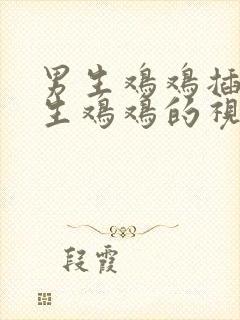 男生鸡鸡插
生鸡鸡的视
段霞